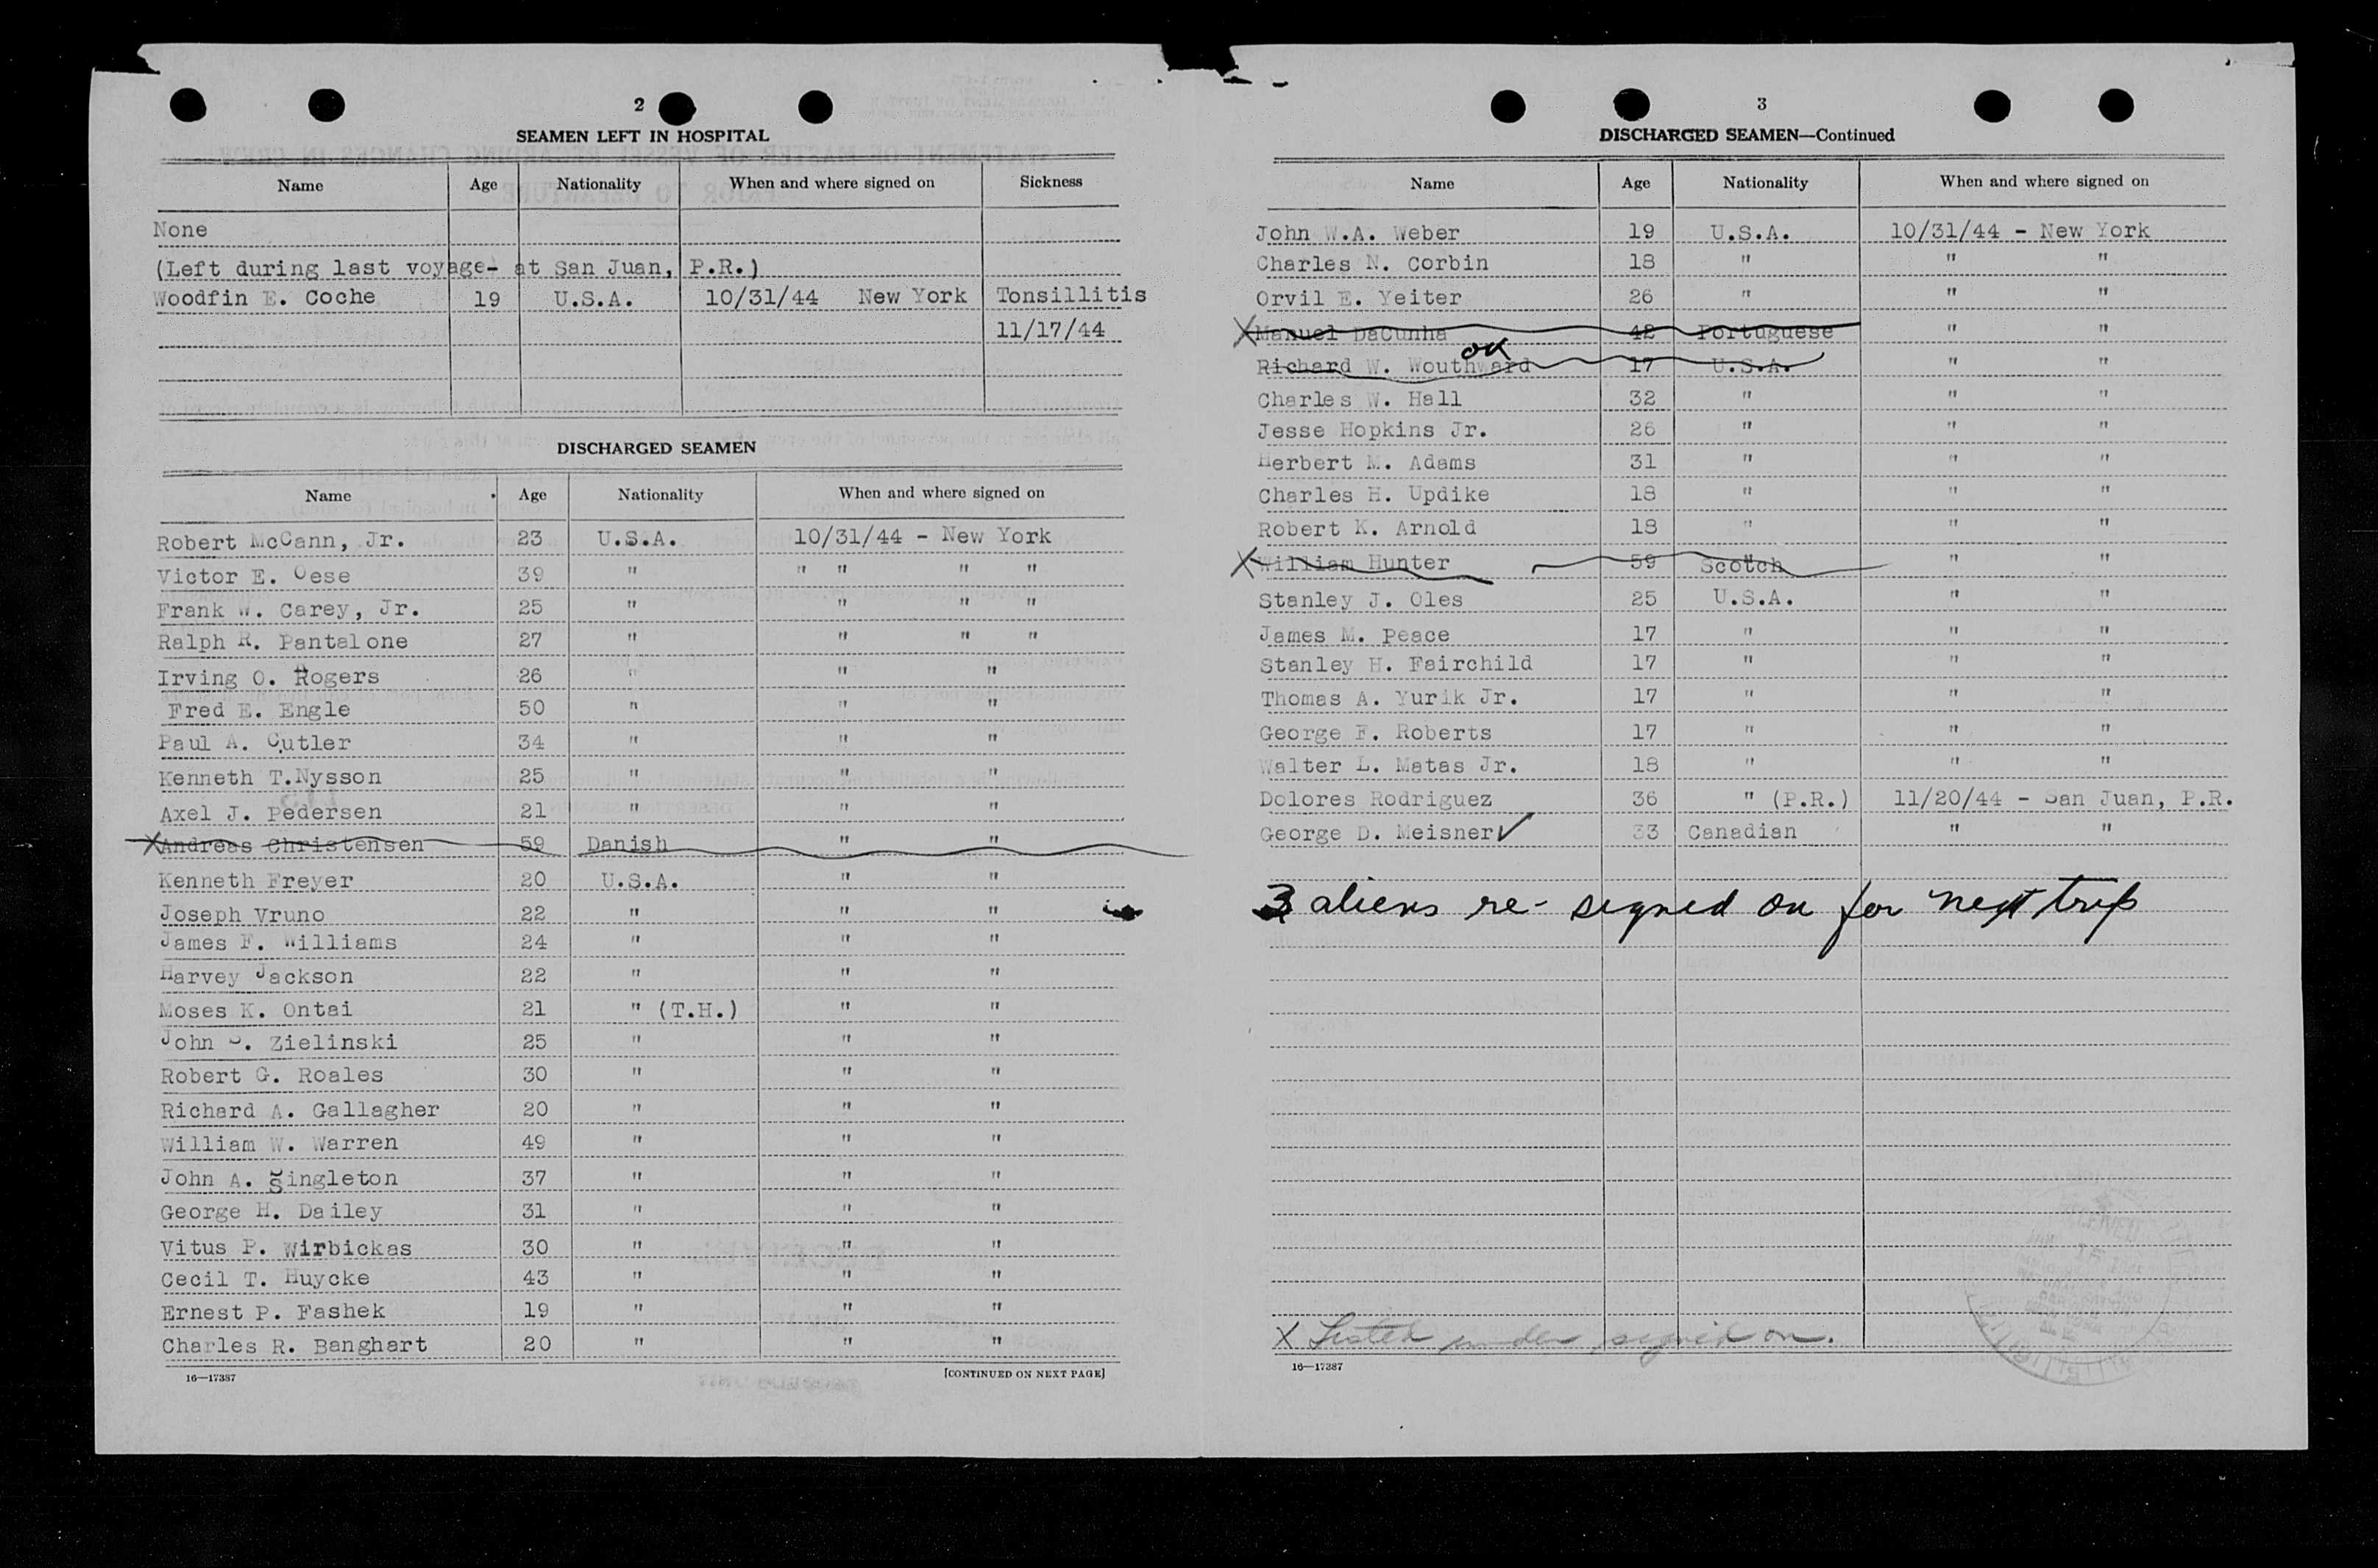 2
SEAMEN LEFT IN HOSPITAL
Name Age Nationality When and where signed on Sickness
None
(Left during last voyage- at San Juan, P.R.)
Woodfin E. Coche 19 U.S.A. 10/31/44 New York Tonsillitis
11/17/44
DISCHARGED SEAMEN
Name Age Nationality When and where signed on
Robert McCann, Jr. 23 U.S.A. 10/31/44 - New York
Victor E. Oese 39 " " " " "
Frank W. Carey, Jr. 25 " " " "
Ralph R. Pantalone 27 " " " "
Irving O. Rogers 26 " " "
Fred E. Engle 50 " " "
Paul A. Cutler 34 " " "
Kenneth T.Nysson 25 " " "
Axel J. Pedersen 21 " " "
X Andreas Christensen 59 Danish " "
Kenneth Freyer 20 U.S.A. " "
Joseph Vruno 22 " " "
James F. Williams 24 " " "
Harvey Jackson 22 " " "
Moses K. Ontai 21 " (T.H.) " "
John Zielinski 25 " " "
Robert G. Roales 30 " " "
Richard A. Gallagher 20 " " "
William W. Warren 49 " " "
John A. Singleton 37 " " "
George H. Dailey 31 " " "
Vitus P. Wirbickas 30 " " "
Cecil T. Huycke 43 " " "
Ernest P. Fashek 19 " " "
Charles R. Banghart 20 " " "
16—17387 [CONTINUED ON NEXT PAGE]
3
DISCHARGED SEAMEN—Continued
Name Age Nationality When and where signed on
John W.A. Weber 19 U.S.A. 10/31/44 - New York
Charles N. Corbin 18 " " "
Orvil E. Yeiter 26 " " "
X Manuel DaCunha 42 Portuguese " "
OK
Richard W. Wouthward 17 U.S.A. " "
Charles W. Hall 32 " " "
Jesse Hopkins Jr. 26 " " "
Herbert M. Adams 31 " " "
Charles H. Updike 18 " " "
Robert K. Arnold 18 " " "
X William Hunter 59 Scotch " "
Stanley J. Oles 25 U.S.A. " "
James M. Peace 17 " " "
Stanley H. Fairchild 17 " " "
Thomas A. Yurik Jr. 17 " " "
George F. Roberts 17 " " "
Walter L. Matas Jr. 18 " " "
Dolores Rodriguez 36 " (P.R.) 11/20/44 - San Juan, P.R.
George D. Meisner ✓ 33 Canadian " "
3 aliens re-signed on for next trip
X Listed under signed on.
16—17387